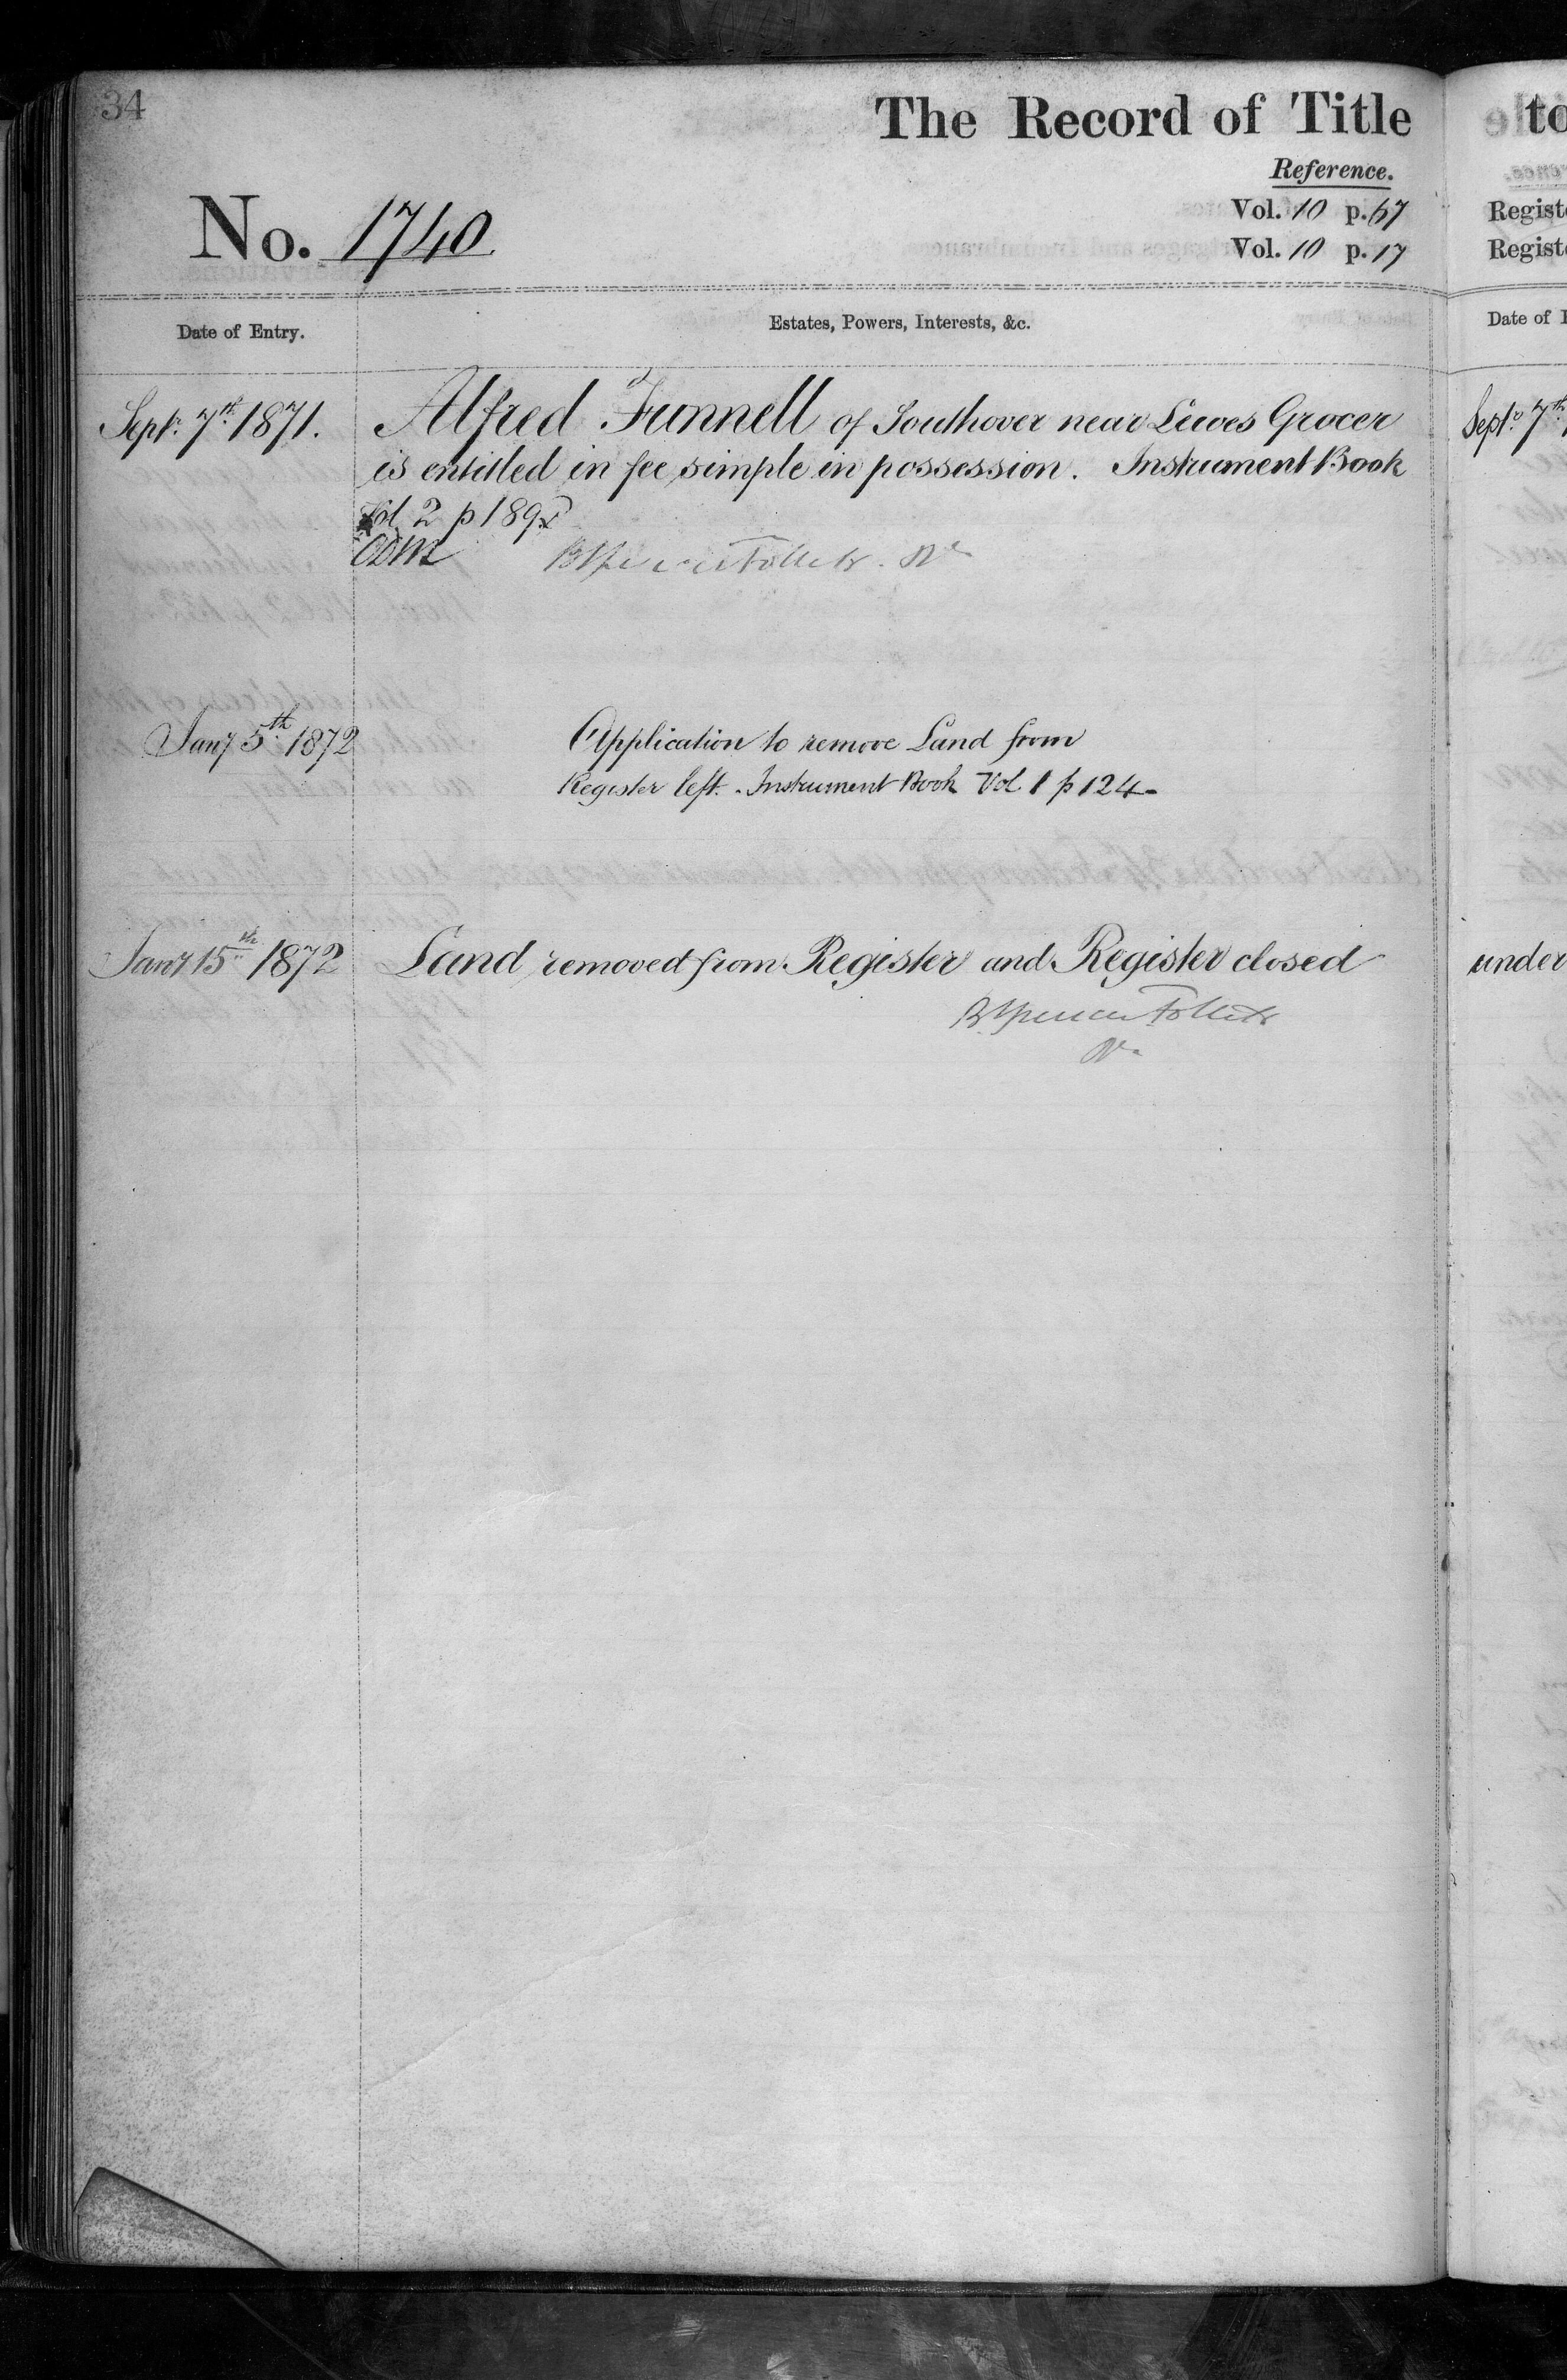 34
The Record of Title
Reference.
No. 1740
Vol. 10 p. 67
Vol. 10 p. 17
Date of Entry.
Estates, Powers, Interests, &c.
Septr. 7th. 1871.
Alfred Funnell of Southover near Lewes Grocer
is entitled in fee simple in possession. Instrument Book
Vol 2 p 189
B Spencer Follett
Jany 5th 1872
Application to remove Land from
Register left. Instrument Book Vol 1 p 124
Jany 15th 1872
Land removed from Register and Register closed
B Spencer Follett
to
Regist
Regist
Date of
Septr 7th
under